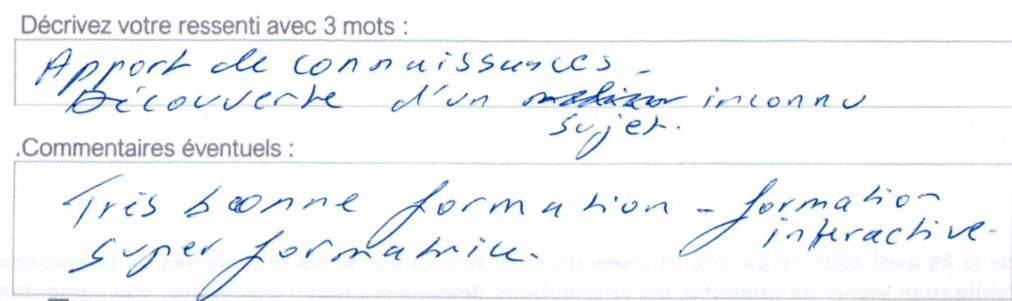 Décrivez votre ressenti avec 3 mots :
Apport de connaissances -
Découverte d'un inconnu
sujet.
.Commentaires éventuels :
Très bonne formation - formation
super formatrice. interactive.